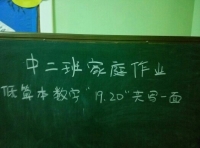 中二班家庭作业
低算本数字"19.20"共写一面